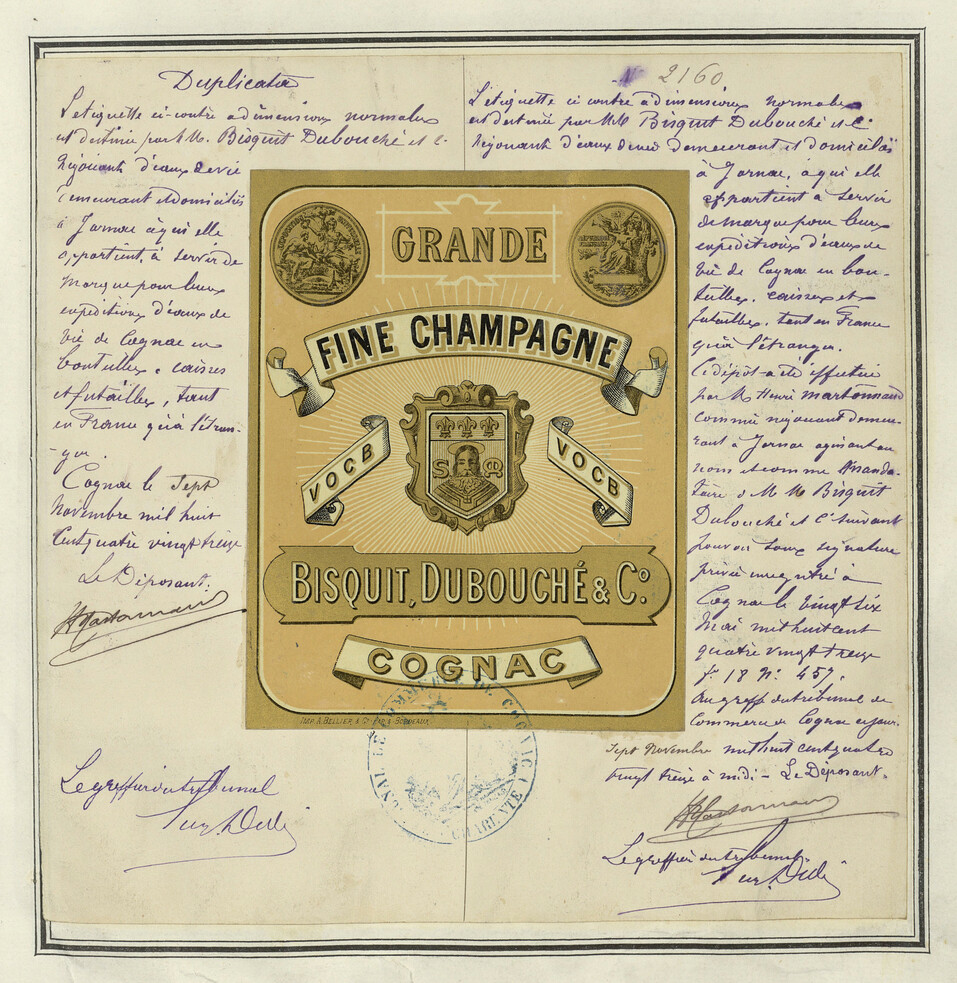 Duplicata
L'étiquette ci-contre à dimensions normales
est destinée par M.M. Bisquit Dubouché et Cie
Négociants d'eaux de vie
demeurant et domiciliés
à Jarnac à qui elle
appartient, à servir de
marque pour leurs
expéditions d'eaux de
vie de Cognac en
bouteilles, caisses
et futailles, tant
en France qu'à l'étran-
-ger.
Cognac le sept
Novembre mil huit
cent quatre vingt treize
Le Déposant.
Le greffier du tribunal
GRANDE
FINE CHAMPAGNE
VOCB
VOCB
S M
BISQUIT, DUBOUCHÉ & Co.
COGNAC
IMP. A. BELLIER & Cie PARIS-BORDEAUX
TRIBUNAL DE COMMERCE DE COGNAC (CHARENTE)
No 2160
L'étiquette ci contre à dimensions normales
est destinée par MM. Bisquit Dubouché et Cie
Négociants d'eaux de vie demeurant et domiciliés
à Jarnac, à qui elle
appartient à servir
de marque pour leurs
expéditions d'eaux de
vie de Cognac en bou-
teilles, caisses et
futailles, tant en France
qu'à l'étranger.
Ce dépôt a été effectué
par M. Henri
commis négociant demeu-
rant à Jarnac agissant au
nom et comme manda-
taire de M M Bisquit
Dubouché et Cie suivant
pouvoir sous signature
privée enregistré à
Cognac le vingt six
Mai mil huit cent
quatre vingt treize
fo 18 No 457.
Au greffe du tribunal de
Commerce de Cognac ce jour
sept Novembre mil huit cent quatre
vingt treize à midi - Le Déposant.
Le greffier du tribunal